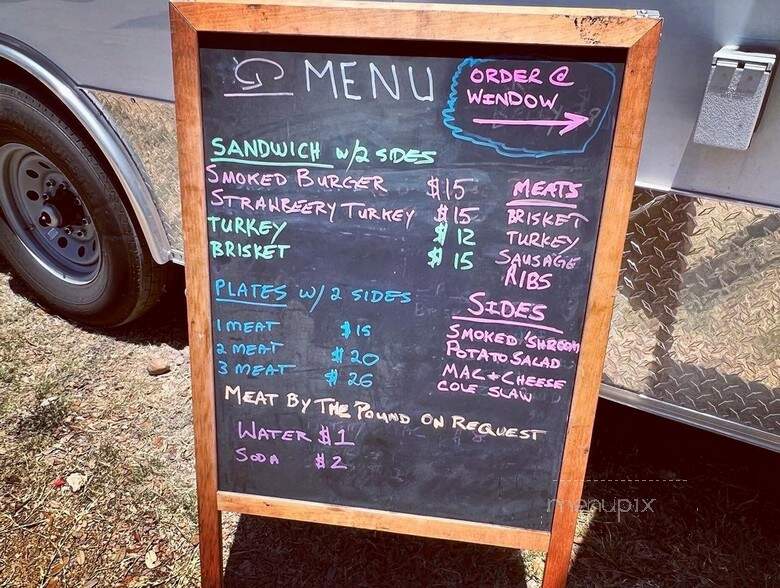 MENU
ORDER @
WINDOW
SANDWICH W/2 SIDES
SMOKED BURGER $15
STRAWBEERY TURKEY $15
TURKEY $12
BRISKET $15
MEATS
BRISKET
TURKEY
SAUSAGE
RIBS
PLATES W/ 2 SIDES
1 MEAT $15
2 MEAT $20
3 MEAT $26
SIDES
SMOKED 'SHROOM
POTATO SALAD
MAC + CHEESE
COLE SLAW
MEAT BY THE POUND ON REQUEST
WATER $1
SODA $2
menupix